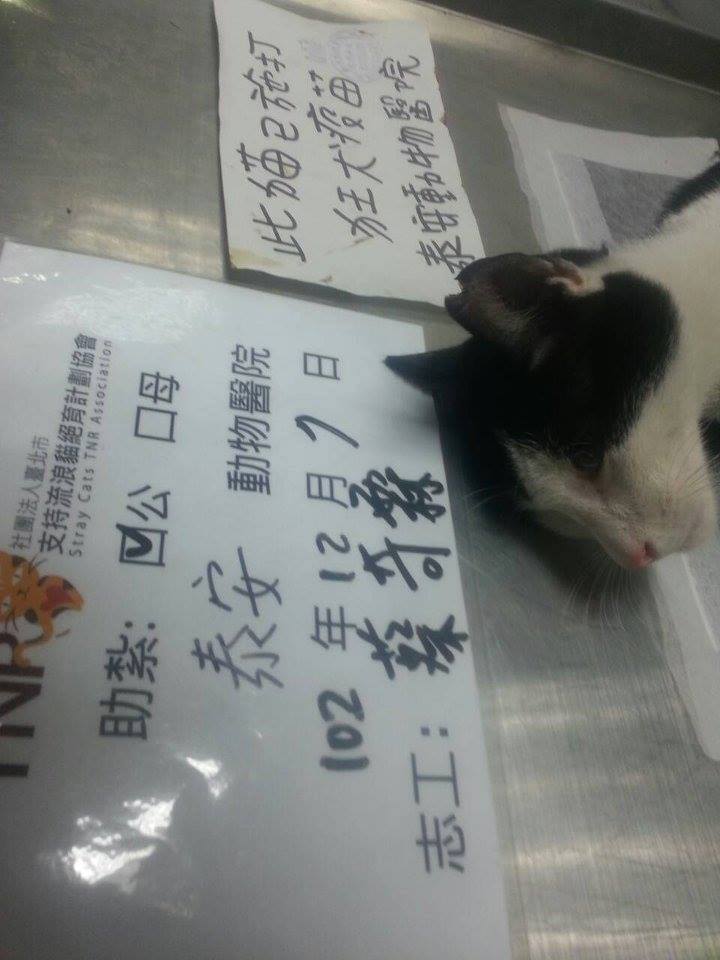 此貓已施打
狂犬疫苗
泰安動物醫院
社團法人臺北市
支持流浪貓絕育計劃協會
Stray Cats TNR Association
TNR
助紮: ☑公 口母
泰安 動物醫院
102 年 12 月 7 日
志工: 蔡奇霖